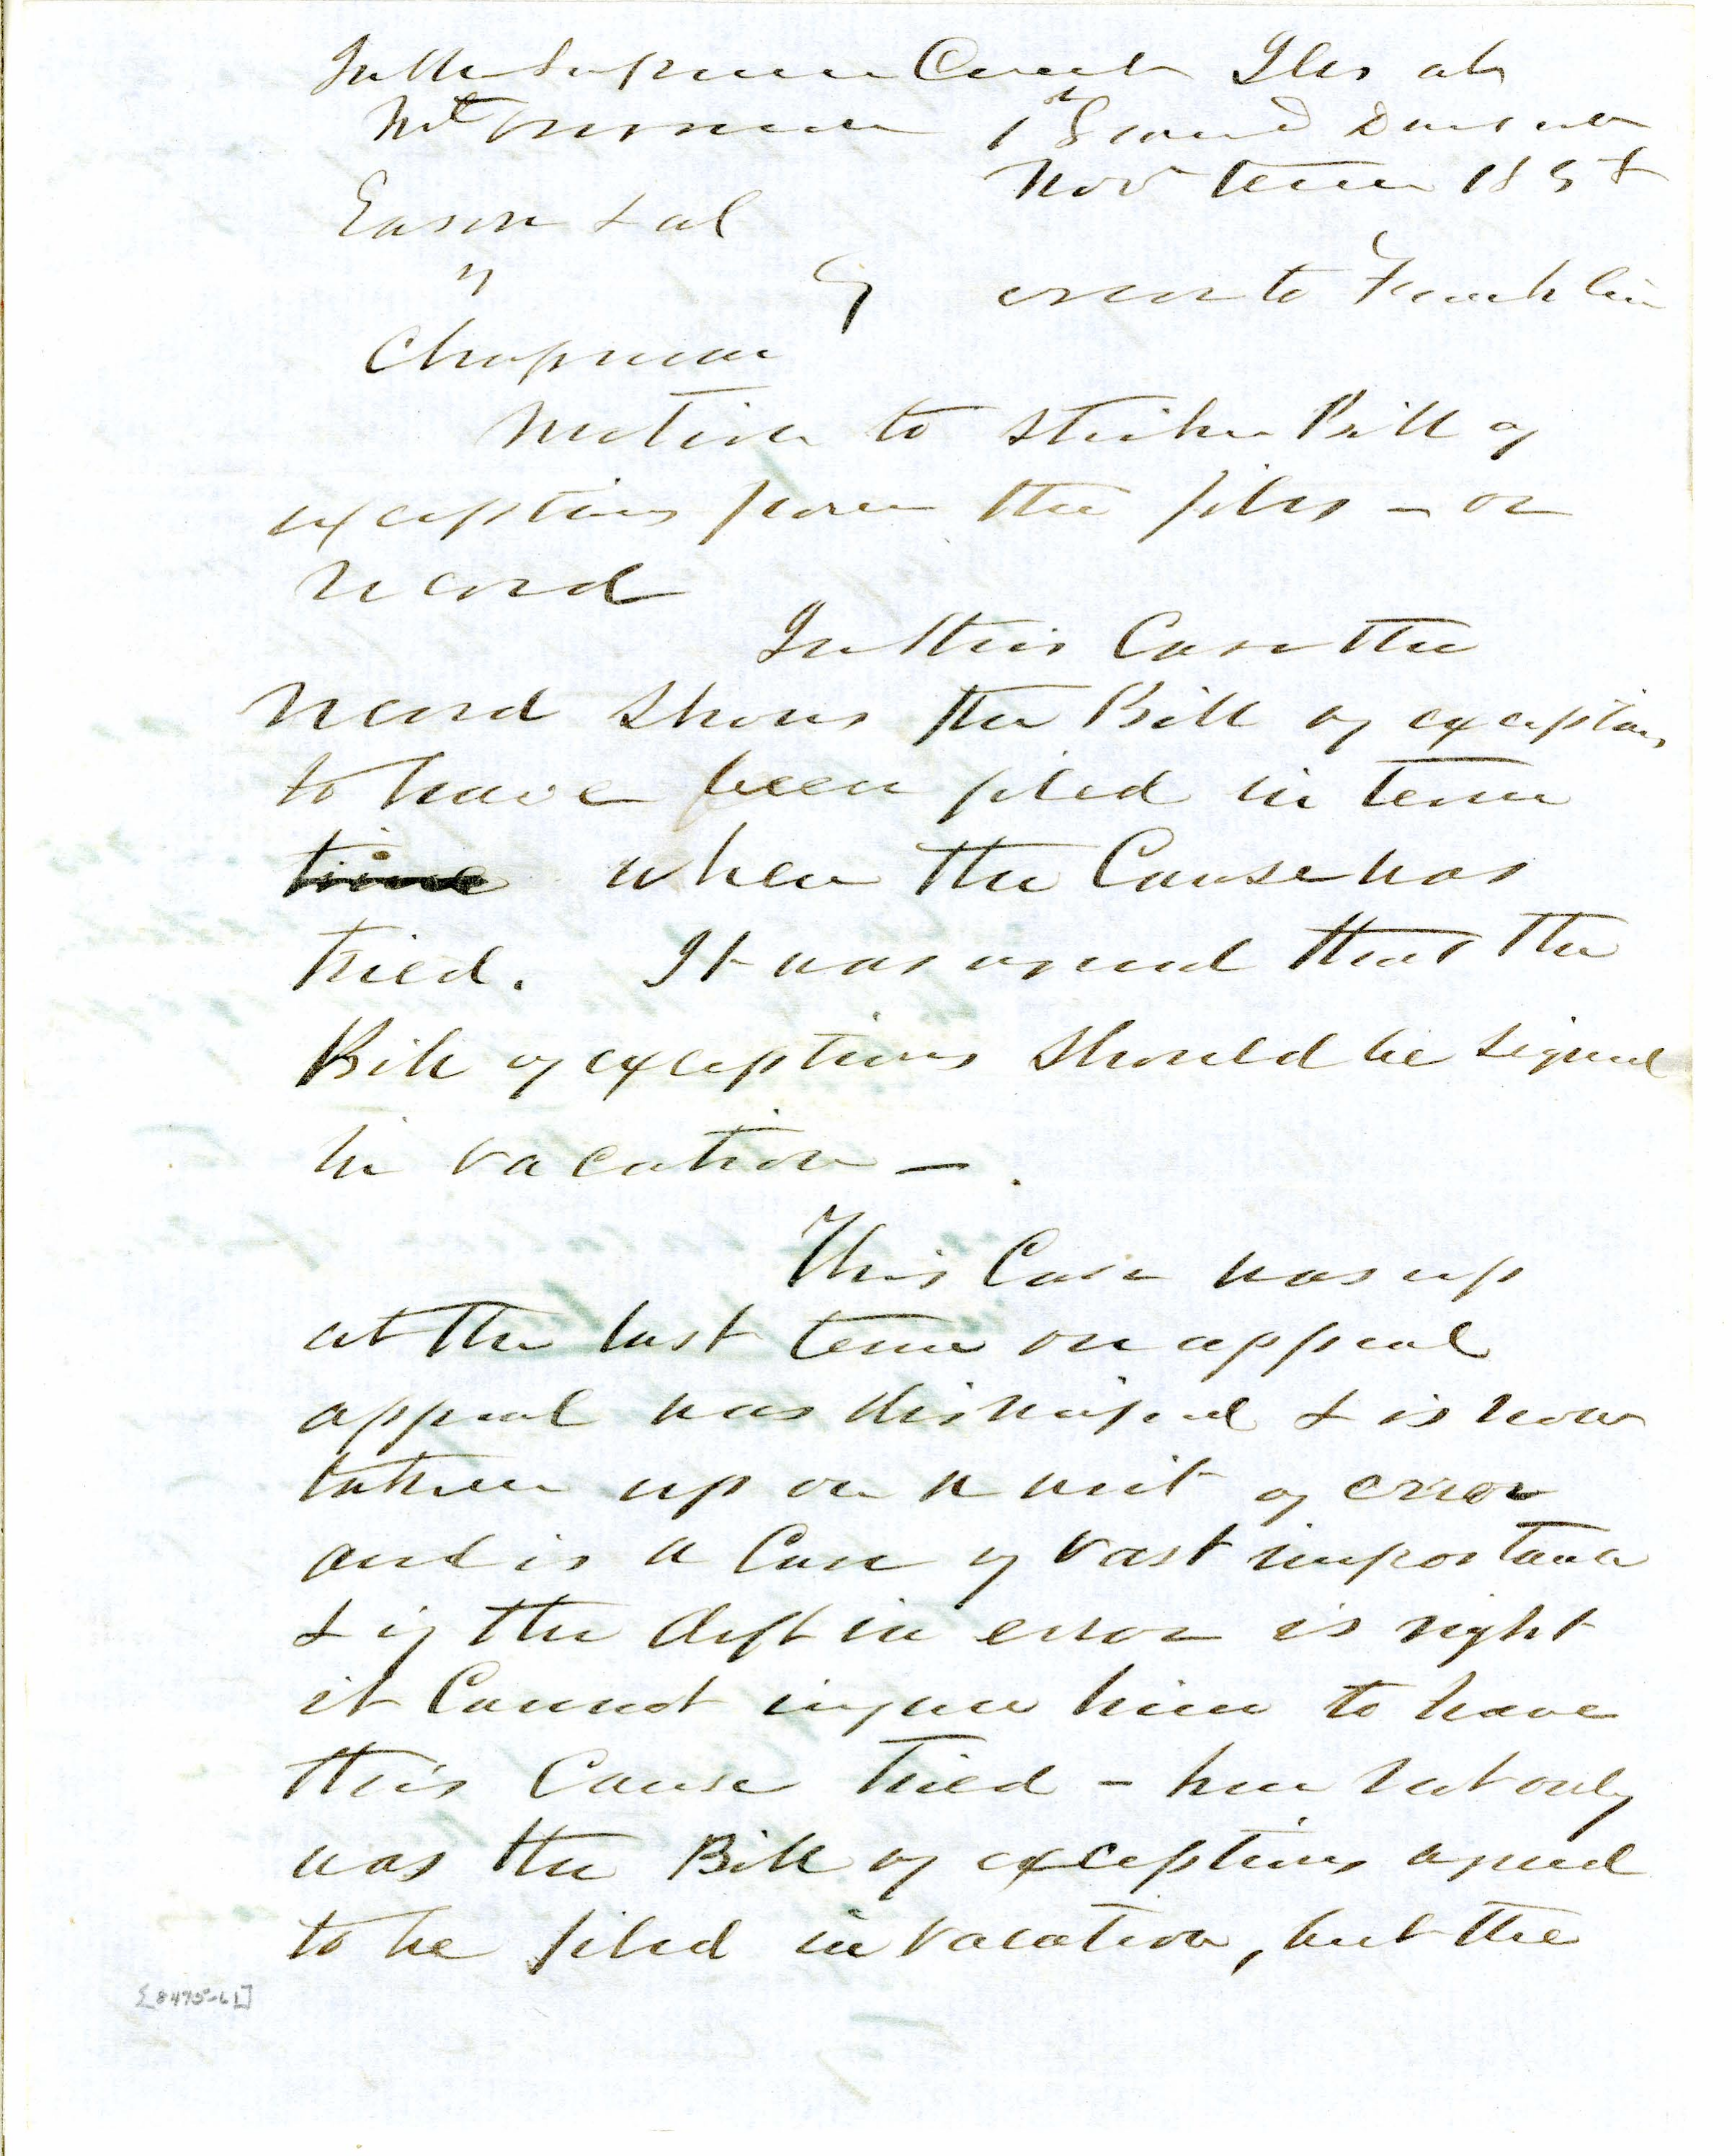 In the Supreme Court Ills at
Mt Vernon 1st Grand Division
Nov term 1858
Eason & al
vs } error to Franklin
Chapman
Motion to strike Bill of
exceptions from the files – or
record
In this Case the
record shows the Bill of exceptions
to have been filed in term
time when the Cause was
tried. It was agreed that the
Bill of exceptions should be signed
in vacation –.
This Case was up
at the last term on appeal
appeal was dismissed & is now
taken up on a writ of error
and is a Case of vast importance
& if the deft in error is right
it Cannot injure him to have
this Cause tried – here not only
was the Bill of exceptions agreed
to be filed in vacation, but the
[8475-61]